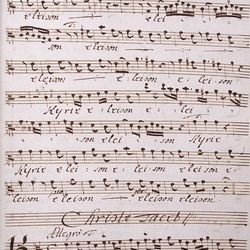 elei
son eleison
eleison eleison eleison
Kyrie eleison elei
son elei son Kyrie
Kyrie eleison eleison elei
leison eleison
Christe tacet
Allegro